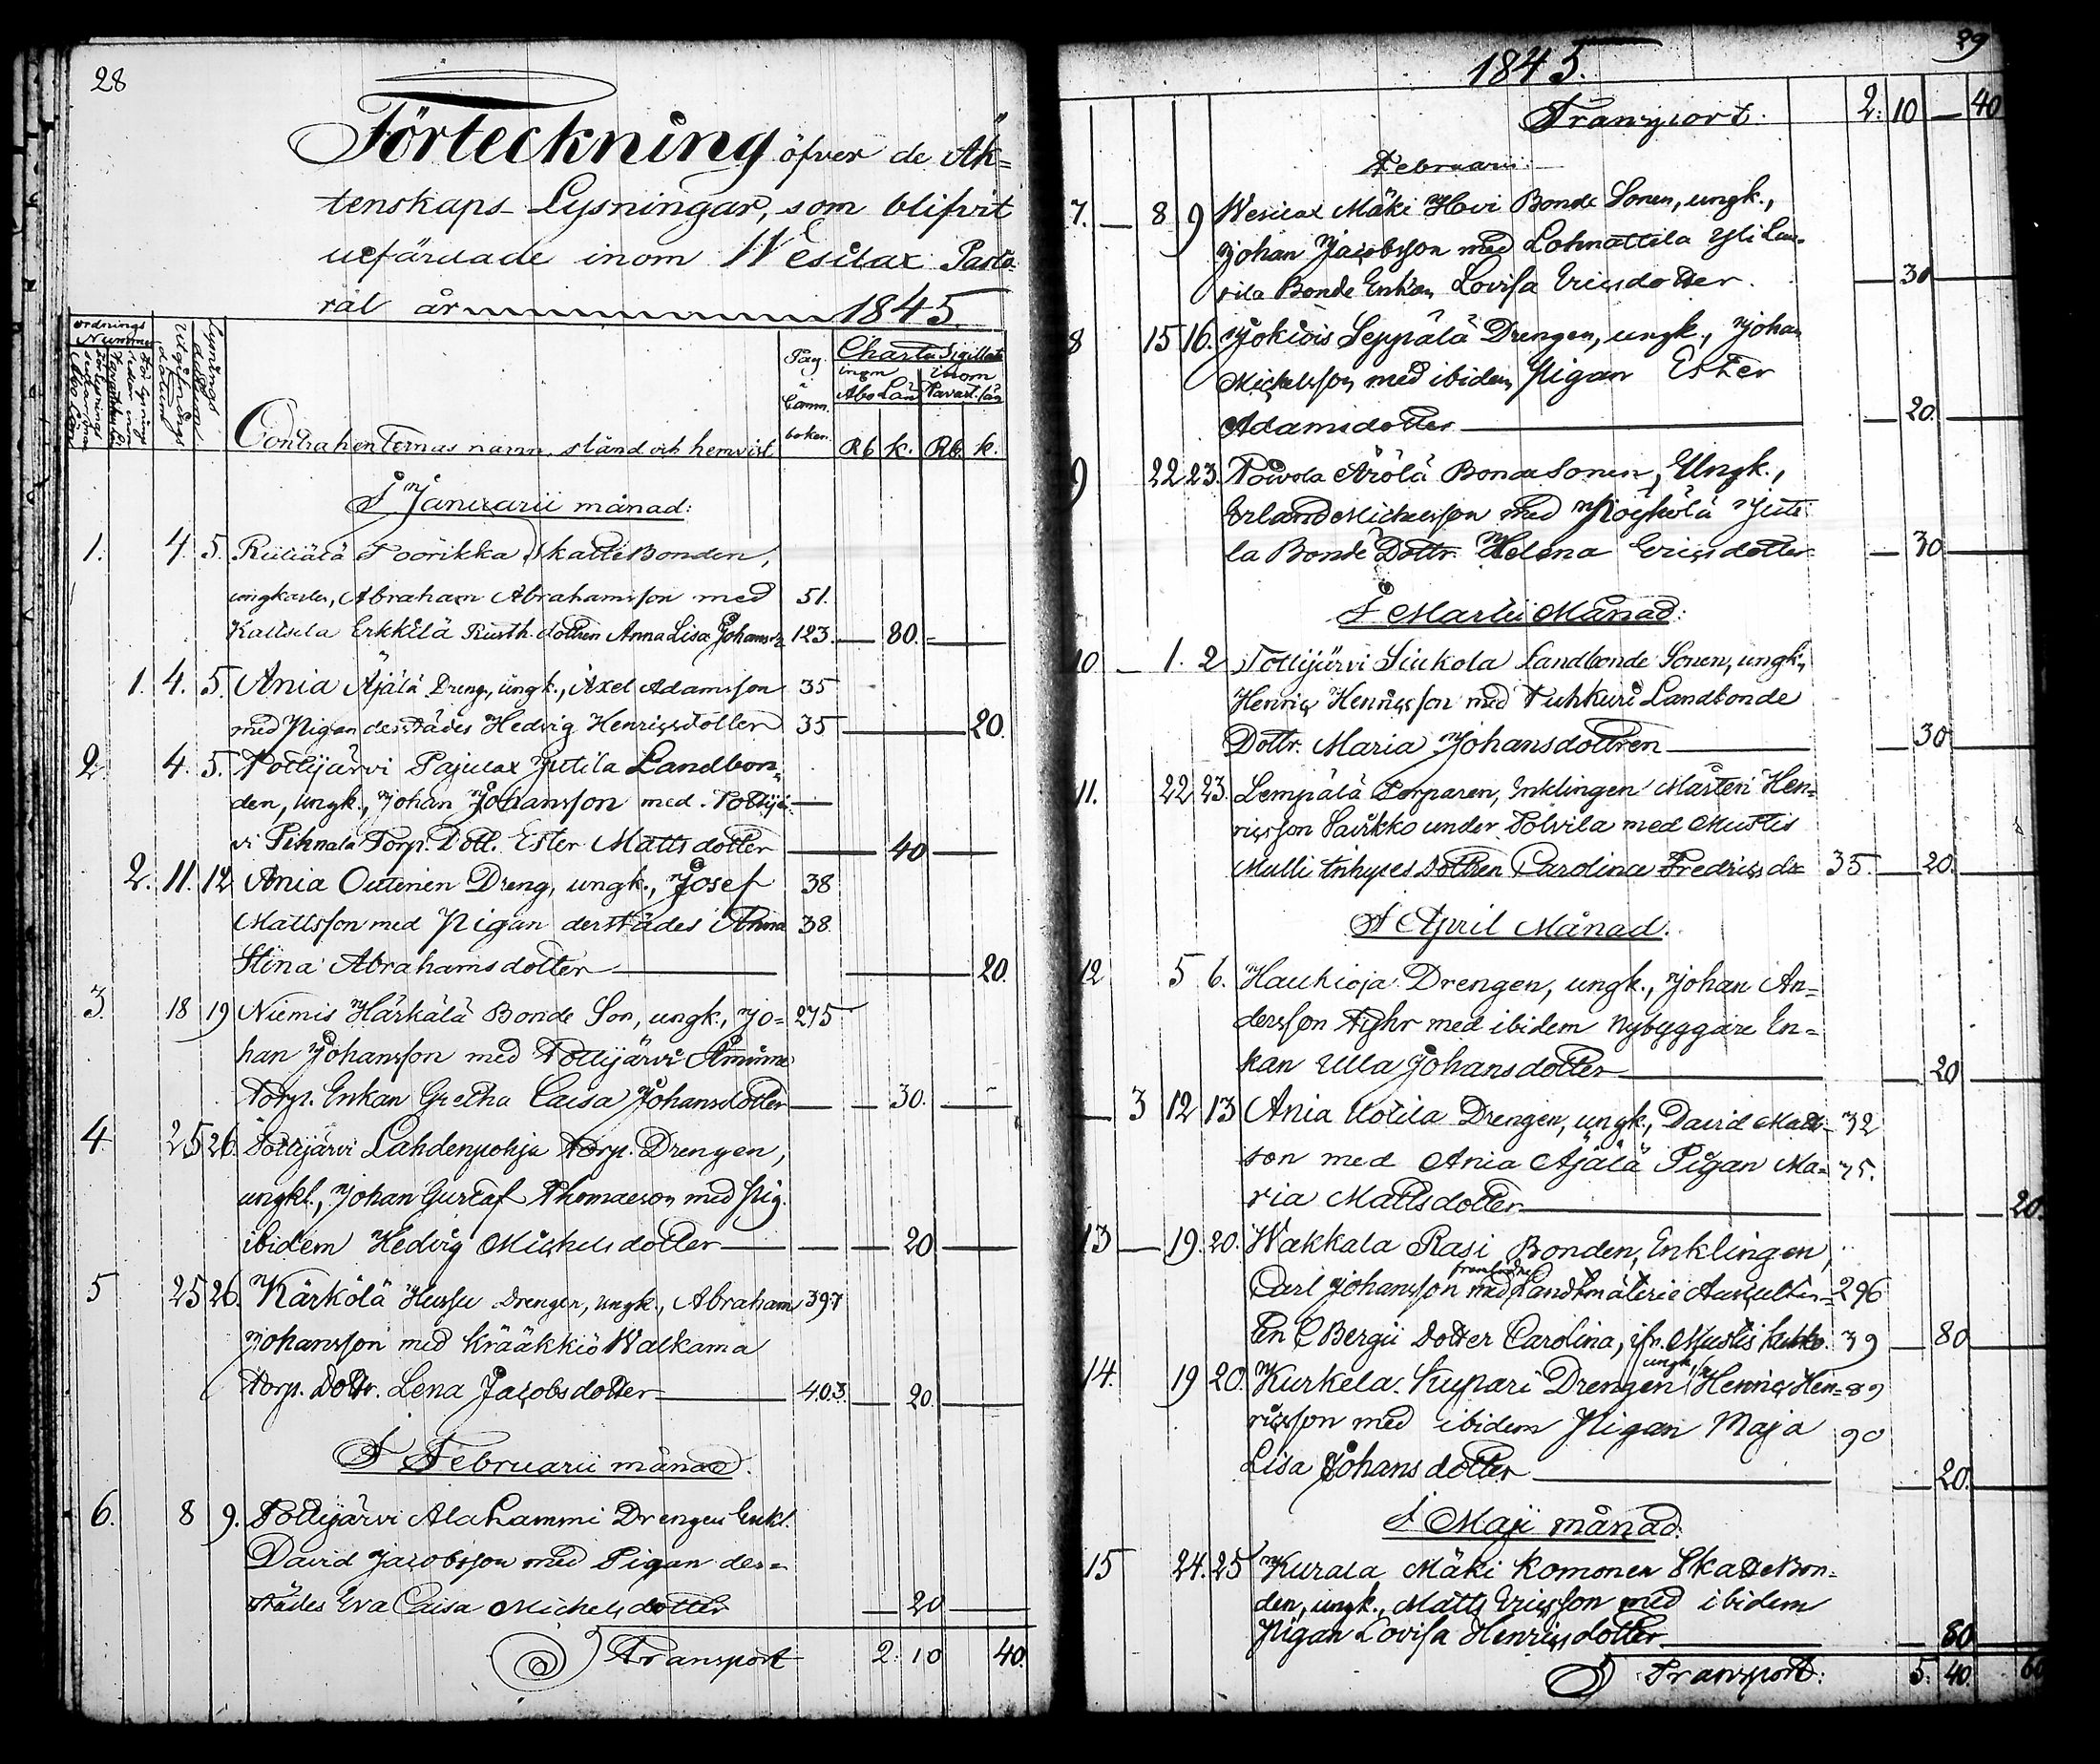 28
Förteckning öfver de Äk=
tenskaps Lysningar, som blifvit
utfärdade inom Wesilax Pasto=
rat år 1845.
Ordnings Nummer
Lysnings
Pag. i Comm. boken
Charta Sigillata
inom Åbo Län
inom Tavast. län
Contrahenternas namn, stånd och hemvist
Rb k. Rb. k.
I Januarii månad:
1. 4. 5. Skatte Bonden,
Abraham Abrahamsson med 51.
Erkkilä Rusth. dottren Anna Lisa Johansd: 123. 80.
1. 4. 5. Ania Äjälä Dreng, ungk., Axel Adamsson 35
med Pigan derstädes Hedvig Henricsdotter 35 20.
2 4. 5. Tottijärvi Pajulax Jutila Landbon=
den, ungk., Johan Johansson med Tottijär=
vi Pihnala Torp. Dott. Ester Mattsdotter 40
2. 11. 12 Ania Outinen Dreng, ungk., Josef 38
Mattsson med Pigan derstädes Anna 38.
Stina Abrahamsdotter 20.
3. 18 19 Niemis Härkälä Bonde Son, ungk., Jo= 275
han Johansson med Tottijärvi
torp. Enkan Gretha Caisa Johansdotter 30.
4 25 26. Tottijärvi Lahdenpohja torp. Drengen,
ungkl., Johan Gustaf Thomasson med Pig.
ibidem Hedvig Michelsdotter 20
5 25 26. Kärkölä Hussu Drengen, ungk., Abraham 397
Johansson med Krääkkiö Walkama
torp. Dottr. Lena Jacobsdotter 403 20.
I Februarii månad.
6. 8 9. Tottijärvi Alahammi Drengen Enkl.
David Jacobsson med Pigan der=
städes Eva Caisa Michelsdotter 20
Transport 2. 10 40.
29
1845.
Transport. 2. 10 40
Februarii:
7. 8 9 Wesilax Mäki Hovi Bonde Sonen, ungk.,
Johan Jacobsson med Lohnattila Yli Lau=
rila Bonde Enkan Lovisa Ericsdotter. 30
8 15 16. Jokiois Seppälä Drengen, ungk., Johan
Michelsson med ibidem Pigan Ester
Adamsdotter 20.
9 22 23. Bonde Sonen, Ungk.,
Erland Michelsson med
la Bonde Dottr. Helena Ericsdotter 30
I Martii Månad:
10 1. 2 Tottijärvi Siukola Landbonde Sonen, ungk.,
Henric Henricsson med Puhkuri Landbonde
Dottr. Maria Johansdottren 30
11. 22 23. Lempälä Torparen, Enklingen Mårten Hen=
ricsson Savikko under Tolvila med Mustis
Mulli Inhyses Dottren Carolina Fredricsdr 35. 20.
I April Månad.
12 5 6. Haukioja Drengen, ungk., Johan An=
dersson med ibidem Nybyggare En=
kan Ulla Johansdotter 20
3 12 13 Ania Uotila Drengen, ungk., David Matts= 32
son med Ania Äjälä Pigan Ma= 35.
ria Mattsdotter 20.
13 19. 20. Wakkala Rasi Bonden, Enklingen,
Carl Johansson med framledne Landtmäterie Auscultan= 296
ten C Bergii Dotter Carolina, ifr. Mustis 39 80
14. 19 20. Kurkela Kupari Drengen, ungk. Henric Hen= 89
ricsson med ibidem Pigan Maja 90
Lisa Johansdotter 20.
I Maji månad:
15 24. 25 Kurala Mäki Komonen Skatte Bon=
den, ungk., Matts Ericsson med ibidem
Pigan Lovisa Henricsdotter 80
Transport: 5. 40. 60